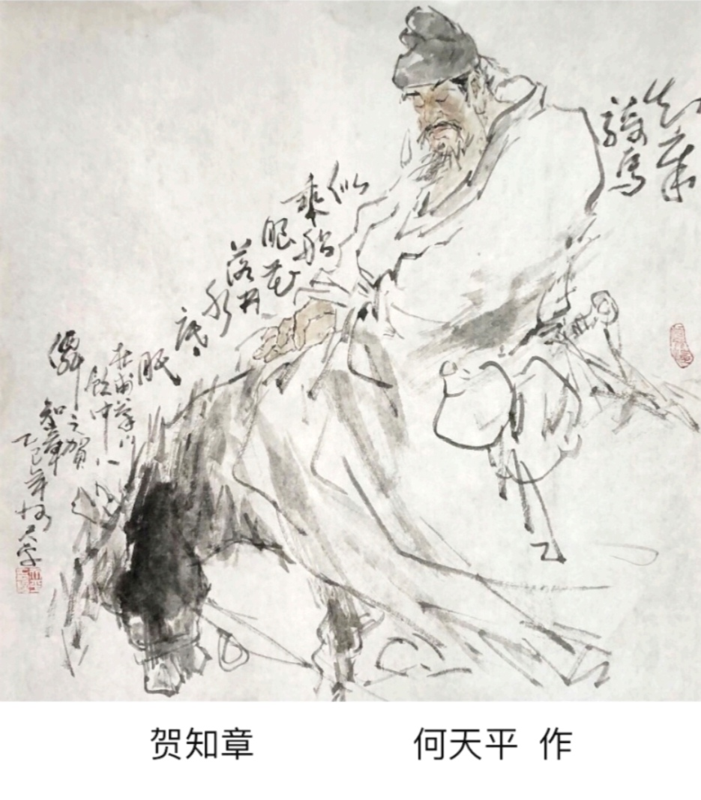 知章
骑馬
似
乘船
眼花
落井
水
底
眠
杜甫
饮中八
僊之贺
知章
乙巳年何天平
贺知章 何天平 作